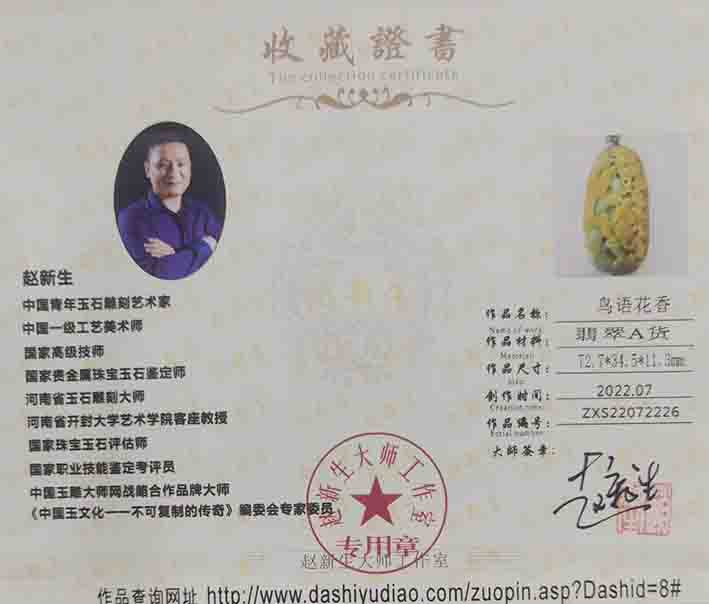 收藏證書
The collection certificate
赵新生
中国青年玉石雕刻艺术家
中国一级工艺美术师
国家高级技师
国家贵金属珠宝玉石鉴定师
河南省玉石雕刻大师
河南省开封大学艺术学院客座教授
国家珠宝玉石评估师
国家职业技能鉴定考评员
中国玉雕大师网战略合作品牌大师
《中国玉文化——不可复制的传奇》编委会专家委员
作品名称：鸟语花香
Name of work
作品材料：翡翠A货
Material
作品尺寸：72.7*34.5*11.3mm
size
创作时间：2022.07
Creation time
作品编号：ZXS22072226
Serial number
大師签章：
赵新生
赵新生大师工作室
专用章
赵新生大师工作室
作品查询网址 http://www.dashiyudiao.com/zuopin.asp?Dashid=8#